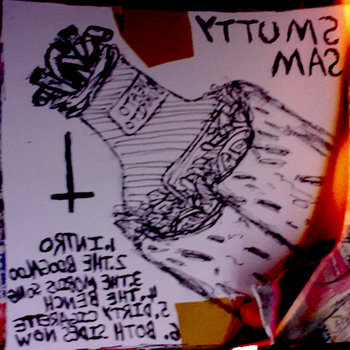 SMUTTY
SAM
1. INTRO
2. THE BOOGALOO
3. THE SONG
4. THE BENCH
5. DIRTY CIGARETTE
6. BOTH SIDES NOW